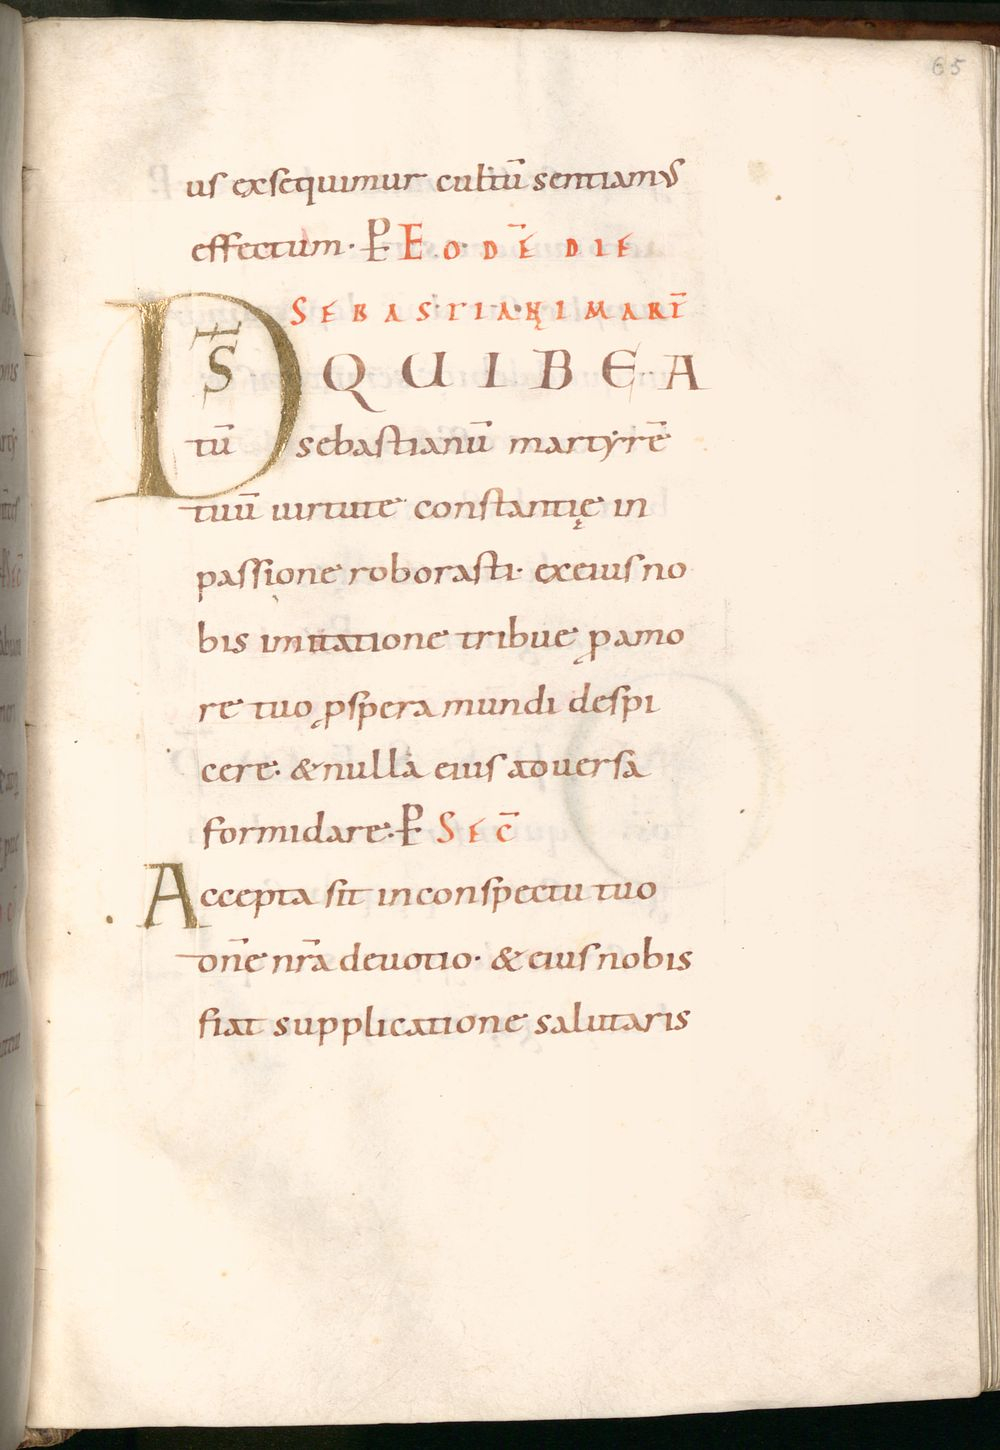 65
us exsequimur cultū sentiamus
effectum· P EODĒ DIE
SEBASTIANI MART̄
DS̄ QUI BEA
tū sebastianū martyrē
tuū uirtute constantię in
passione roborasti· ex eius no
bis imitatione tribue p amo
re tuo pspera mundi despi
cere· & nulla eius aduersa
formidare·P SEC̄
Accepta sit in conspectu tuo
dn̄e nr̄a deuotio· & eius nobis
fiat supplicatione salutaris